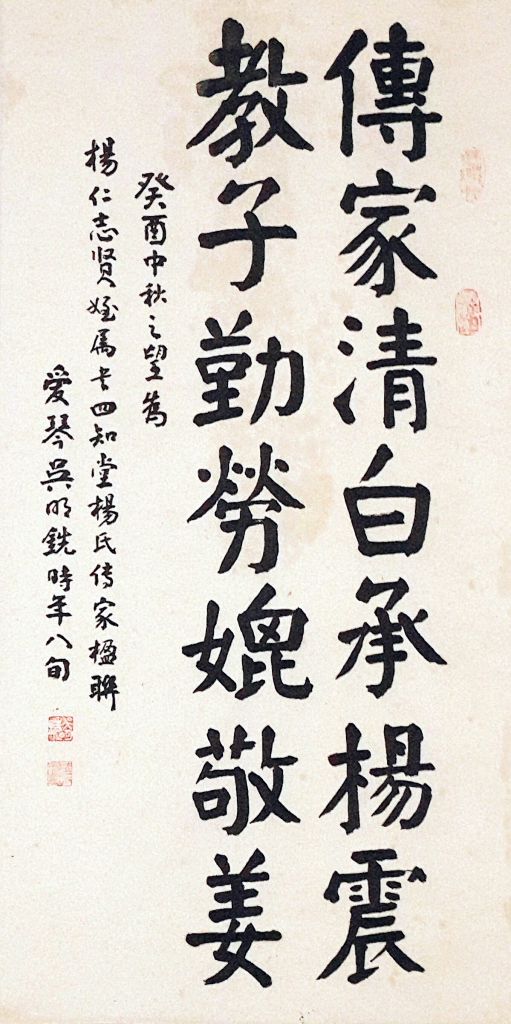 傳家清白承楊震
教子勤勞媲敬姜
癸酉中秋之望為
楊仁志贤姪属书四知堂楊氏传家楹聯
愛琴吳明銑時年八旬